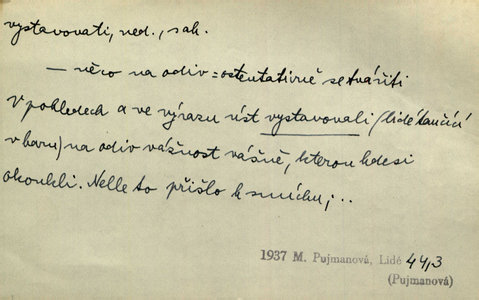 vystavovati, ned., sah.
— něco na odiv = ostentativně se tvářiti
V pohledech a ve výrazu úst vystavovali (lidé tančící
v baru) na odiv vážnost vášně, kterou kdesi
okoukli. Nelle to přišlo k smíchu; ...
1937 M. Pujmanová, Lidé 44,3
(Pujmanová)